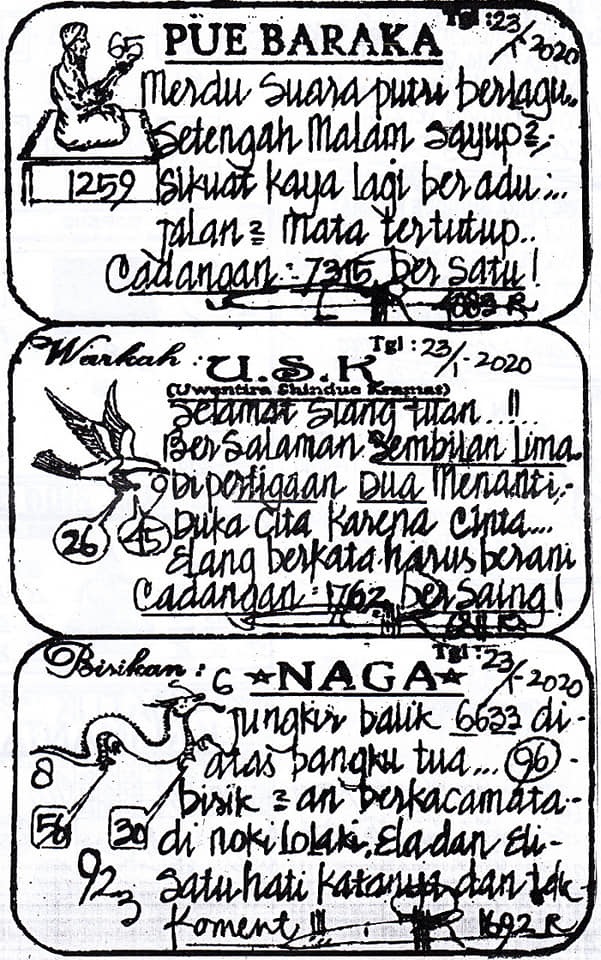 Tgl : 23/1-2020
65 PUE BARAKA
Merdu Suara putri berlagu..
Setengah Malam Sayup2,-
1259 Sikuat kaya lagi beradu :...
Jalan2 Mata tertutup..
Cadangan : 7315 ber satu !
Warkah : U.S.K Tgl : 23/1-2020
(Uwentira Shinduo Kramat)
Selamat Siang tuan...!!..
Ber Salaman Sembilan Lima.
9 Dipertigaan Dua Menanti,-
26 45 Duka Cita Karena Cinta...
Elang berkata harus berani
Cadangan : 1762 ber Saing !
Bisikan : 6 NAGA Tgl : 23/1-2020
Jungkir balik 6633 di-
8 atas bangku tua... 96 -
bisik2an berkacamata-
56 30 di noki Lolaki, Ela dan Eli-
923 Satu hati katanya dan Tak
Koment !!! 1692 R